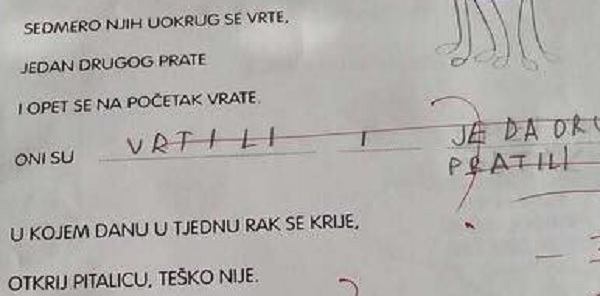 SEDMERO NJIH UOKRUG SE VRTE,
JEDAN DRUGOG PRATE
I OPET SE NA POČETAK VRATE.
ONI SU VRTILI I JE DA
PRATILI
U KOJEM DANU U TJEDNU RAK SE KRIJE,
OTKRIJ PITALICU, TEŠKO NIJE.